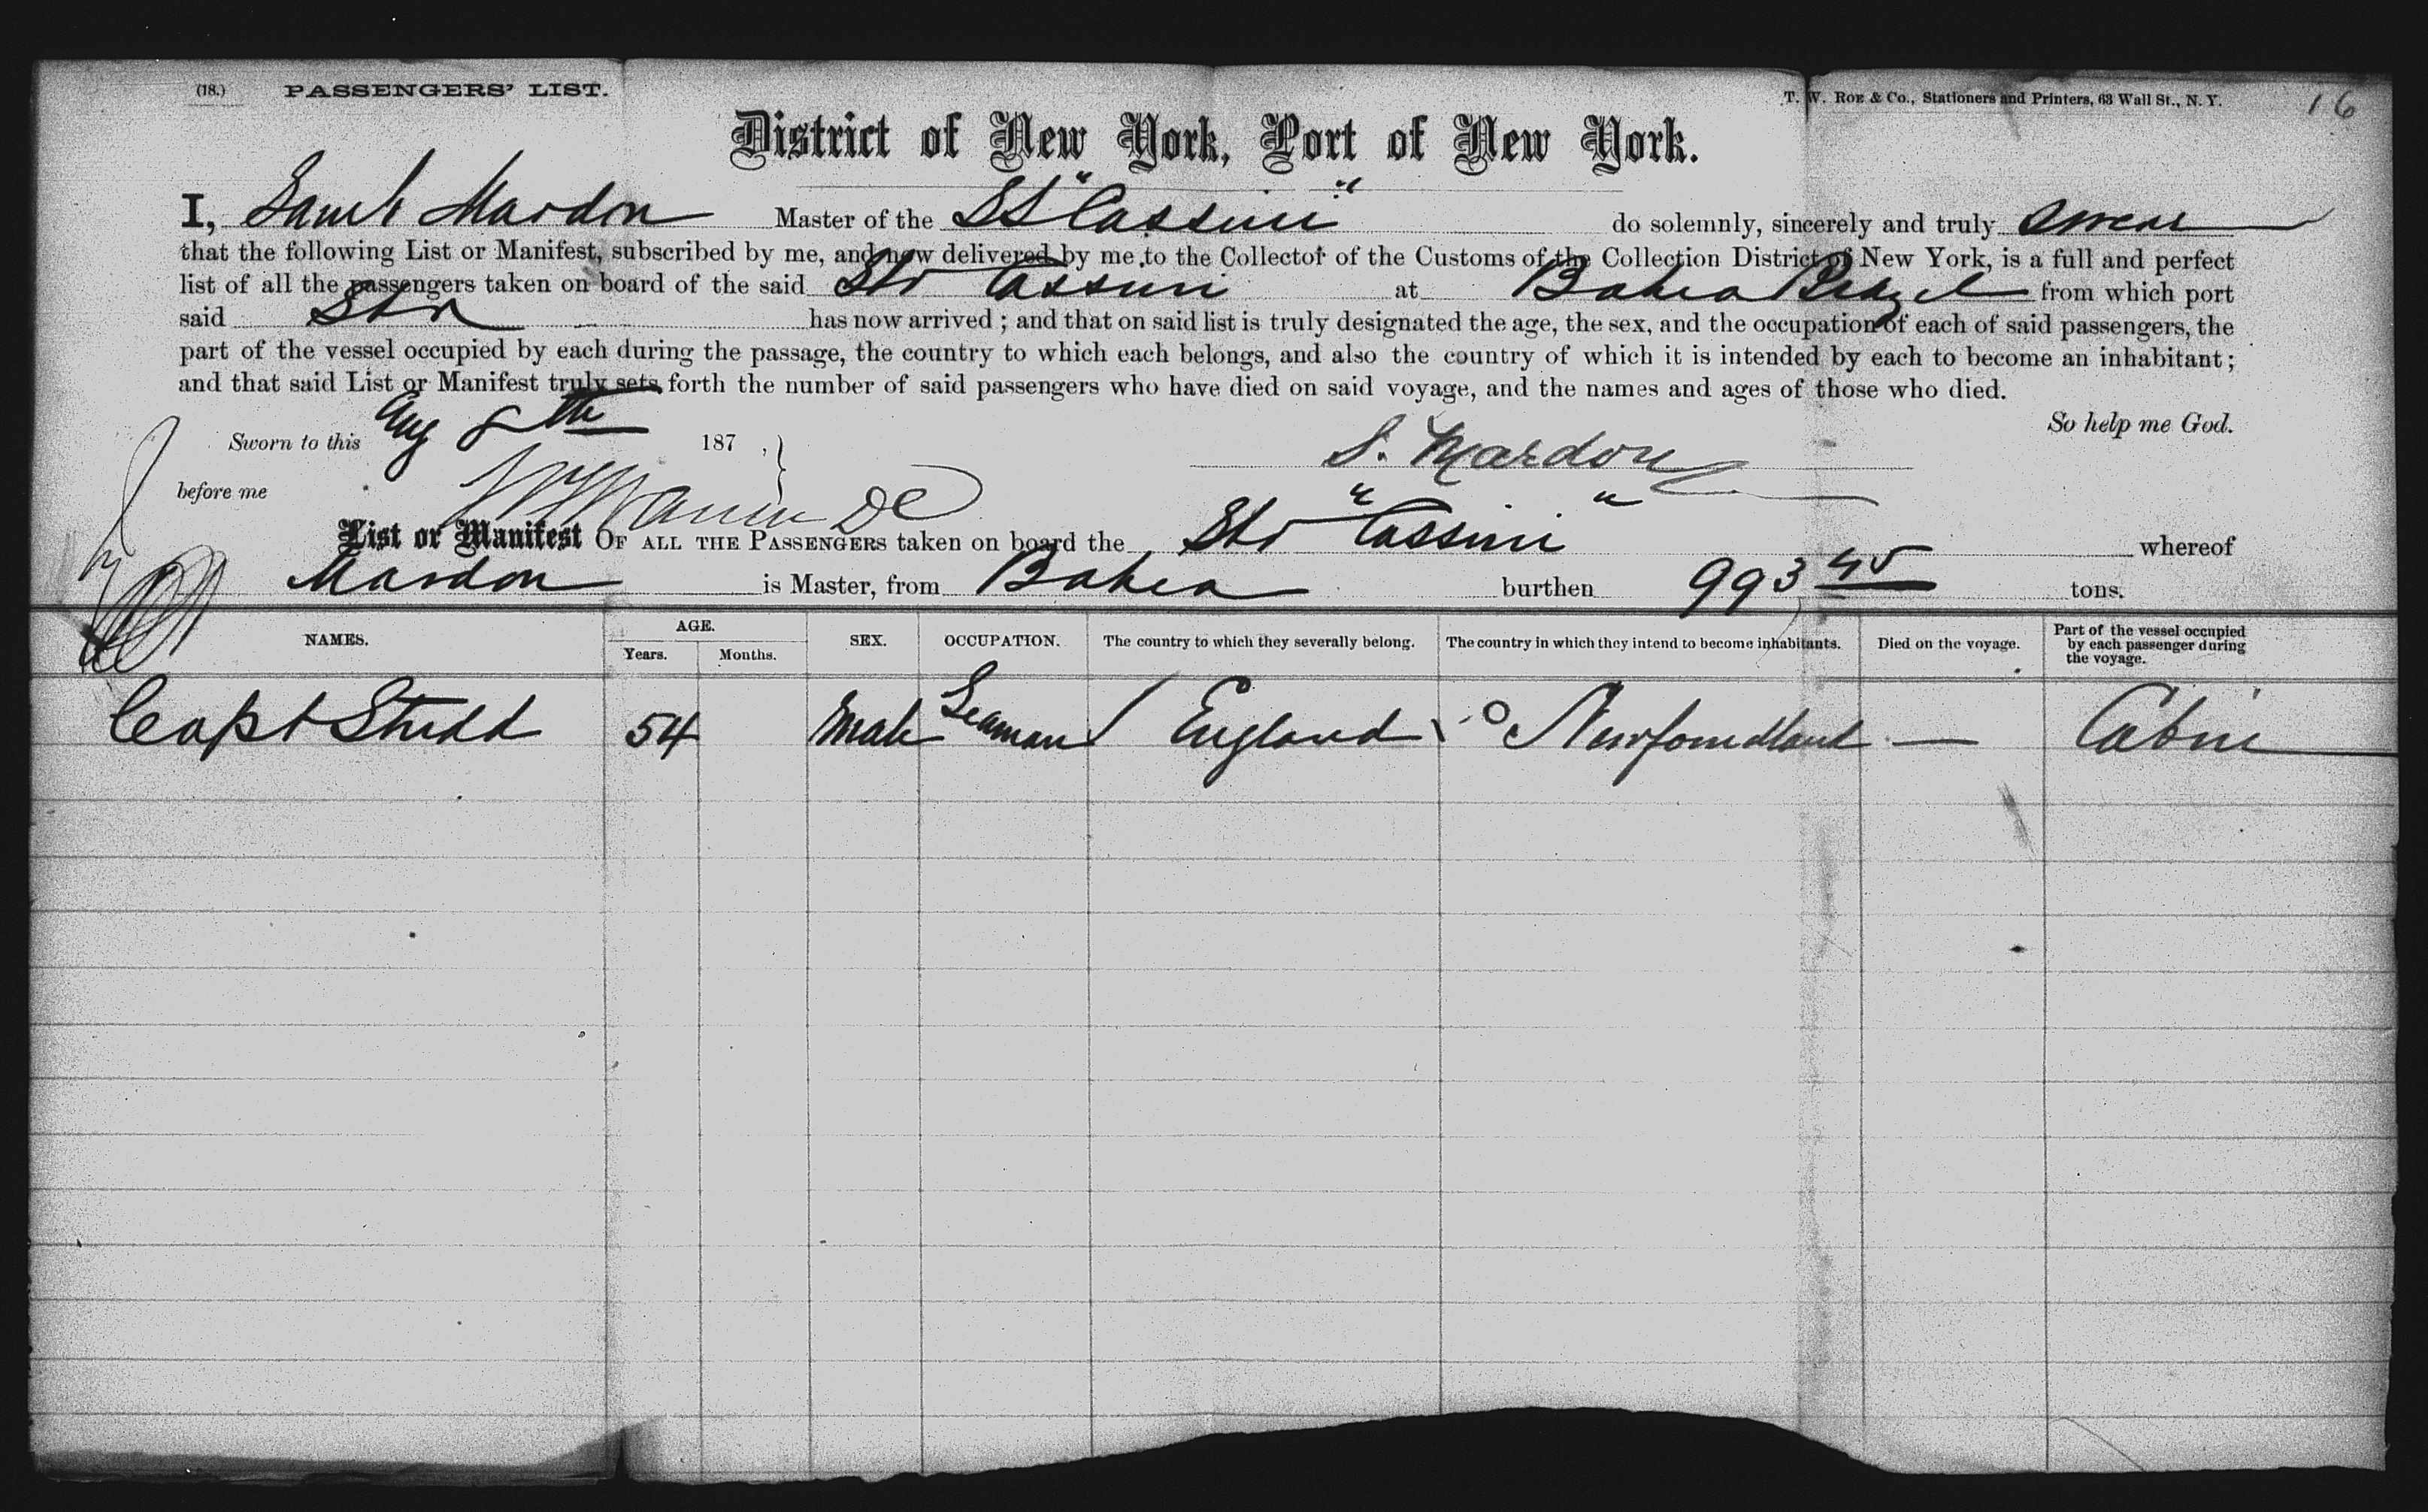 (18.) PASSENGERS' LIST. T. W. ROE & Co., Stationers and Printers, 63 Wall St., N. Y. 16
District of New York, Port of New York.
I, Saml Mardon Master of the SS "Cassini" do solemnly, sincerely and truly swear
that the following List or Manifest, subscribed by me, and now delivered by me to the Collector of the Customs of the Collection District of New York, is a full and perfect
list of all the passengers taken on board of the said Str Cassini at Bahia Brazil from which port
said Str has now arrived; and that on said list is truly designated the age, the sex, and the occupation of each of said passengers, the
part of the vessel occupied by each during the passage, the country to which each belongs, and also the country of which it is intended by each to become an inhabitant;
and that said List or Manifest truly sets forth the number of said passengers who have died on said voyage, and the names and ages of those who died.
So help me God.
Sworn to this Aug 8th 187 , S. Mardon
before me
List or Manifest OF ALL THE PASSENGERS taken on board the Str "Cassini" whereof
Mardon is Master, from Bahia burthen 993 45 tons.
NAMES. AGE. Years. Months. SEX. OCCUPATION. The country to which they severally belong. The country in which they intend to become inhabitants. Died on the voyage. Part of the vessel occupied by each passenger during the voyage.
Capt Studd 54 Male Seaman England Newfoundland — Cabin